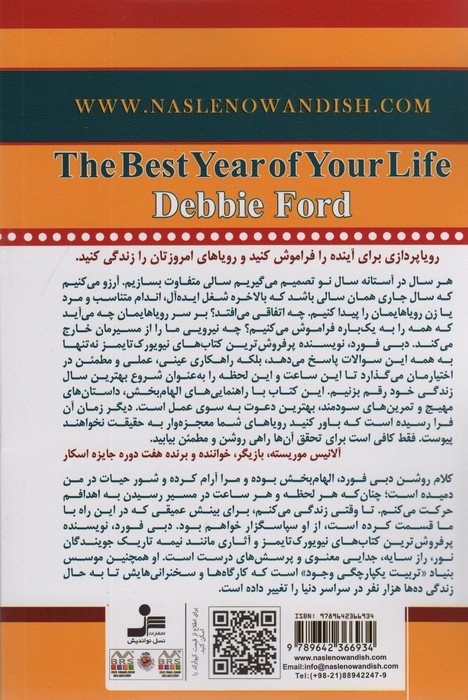 WWW.NASLENOWANDISH.COM
The Best Year of Your Life
Debbie Ford
رویاپردازی برای آینده را فراموش کنید و رویاهای امروزتان را زندگی کنید.
هر سال در آستانه سال نو تصمیم می‌گیریم سالی متفاوت بسازیم. آرزو می‌کنیم
که سال جاری همان سالی باشد که بالاخره شغل ایده‌آل، اندام متناسب و مرد
یا زن رویاهایمان را پیدا کنیم. چه اتفاقی می‌افتد؟ بر سر رویاهایمان چه می‌آید
که همه را به یک‌باره فراموش می‌کنیم؟ چه نیرویی ما را از مسیرمان خارج
می‌کند. دبی فورد، نویسنده پرفروش‌ترین کتاب‌های نیویورک‌تایمز نه‌تنها
به همه این سوالات پاسخ می‌دهد، بلکه راهکاری عینی، عملی و مطمئن در
اختیارمان می‌گذارد تا این ساعت و این لحظه را به‌عنوان شروع بهترین سال
زندگی خود رقم بزنیم. این کتاب با راهنمایی‌های الهام‌بخش، داستان‌های
مهیج و تمرین‌های سودمند، بهترین دعوت به سوی عمل است. دیگر زمان آن
فرا رسیده است که باور کنید رویاهای شما معجزه‌وار به حقیقت نخواهند
پیوست. فقط کافی است برای تحقق آن‌ها راهی روشن و مطمئن بیابید.
آلانیس موریسته، بازیگر، خواننده و برنده هفت دوره جایزه اسکار
کلام روشن دبی فورد، الهام‌بخش بوده و مرا آرام کرده و شور حیات در من
دمیده است؛ چنان‌که هر لحظه و هر ساعت در مسیر رسیدن به اهدافم
حرکت می‌کنم. تا وقتی زندگی می‌کنم، برای بینش عمیقی که در این راه با
ما قسمت کرده است، از او سپاسگزار خواهم بود. دبی فورد، نویسنده
پرفروش‌ترین کتاب‌های نیویورک‌تایمز و آثاری مانند نیمه تاریک جویندگان
نور، راز سایه، جدایی معنوی و پرسش‌های درست است. او همچنین موسس
بنیاد «تربیت یکپارچگی وجود» است که کارگاه‌ها و سخنرانی‌هایش تا به حال
زندگی ده‌ها هزار نفر در سراسر دنیا را تغییر داده است.
انتشارات
نسل نواندیش
BRS
BRS
برای اطلاع از قیمت کیوآرکد را
اسکن کنید.
ISBN: 9789642366934
9 789642 366934
www.naslenowandish.com
Email:info@naslenowandish.com
Tel:(+98-21)88942247-9